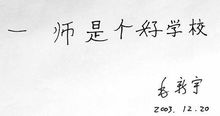 一 师是个好学校
毛新宇
2003. 12. 20